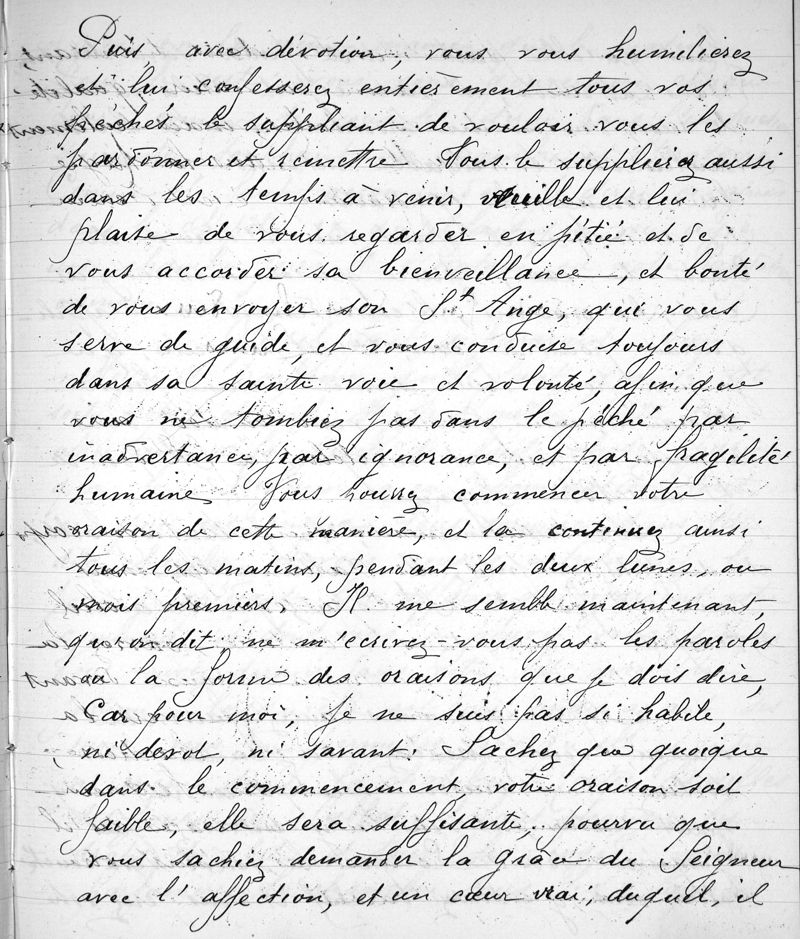 Puis, avec dévotion, vous vous humilierez
et lui confesserez entièrement tous vos
péchés le suppliant de vouloir vous les
pardonner et remettre Vous le supplierez aussi
dans les temps à venir, veuille et lui
plaise de vous regarder en pitié et de
vous accorder sa bienveillance, et bonté
de vous envoyer son St Ange, qui vous
serve de guide, et vous conduise toujours
dans sa sainte voie et volonté, afin que
vous ne tombiez pas dans le péché par
inadvertance, par ignorance, et par fragilité
humaine Vous pourrez commencer votre
oraison de cette manière, et la continuez ainsi
tous les matins, pendant les deux lunes, ou
mois premiers. Il me semble maintenant,
qu'on dit, ne m'ecrivez-vous pas les paroles
ou la forme des oraisons que je dois dire,
Car pour moi, je ne suis pas si habile,
ni devot, ni savant. Sachez que quoique
dans le commencement, votre oraison soit
faible, elle sera suffisante, pourvu que
vous sachiez demander la grâce du Seigneur
avec l'affection, et un cœur vrai, duquel, il